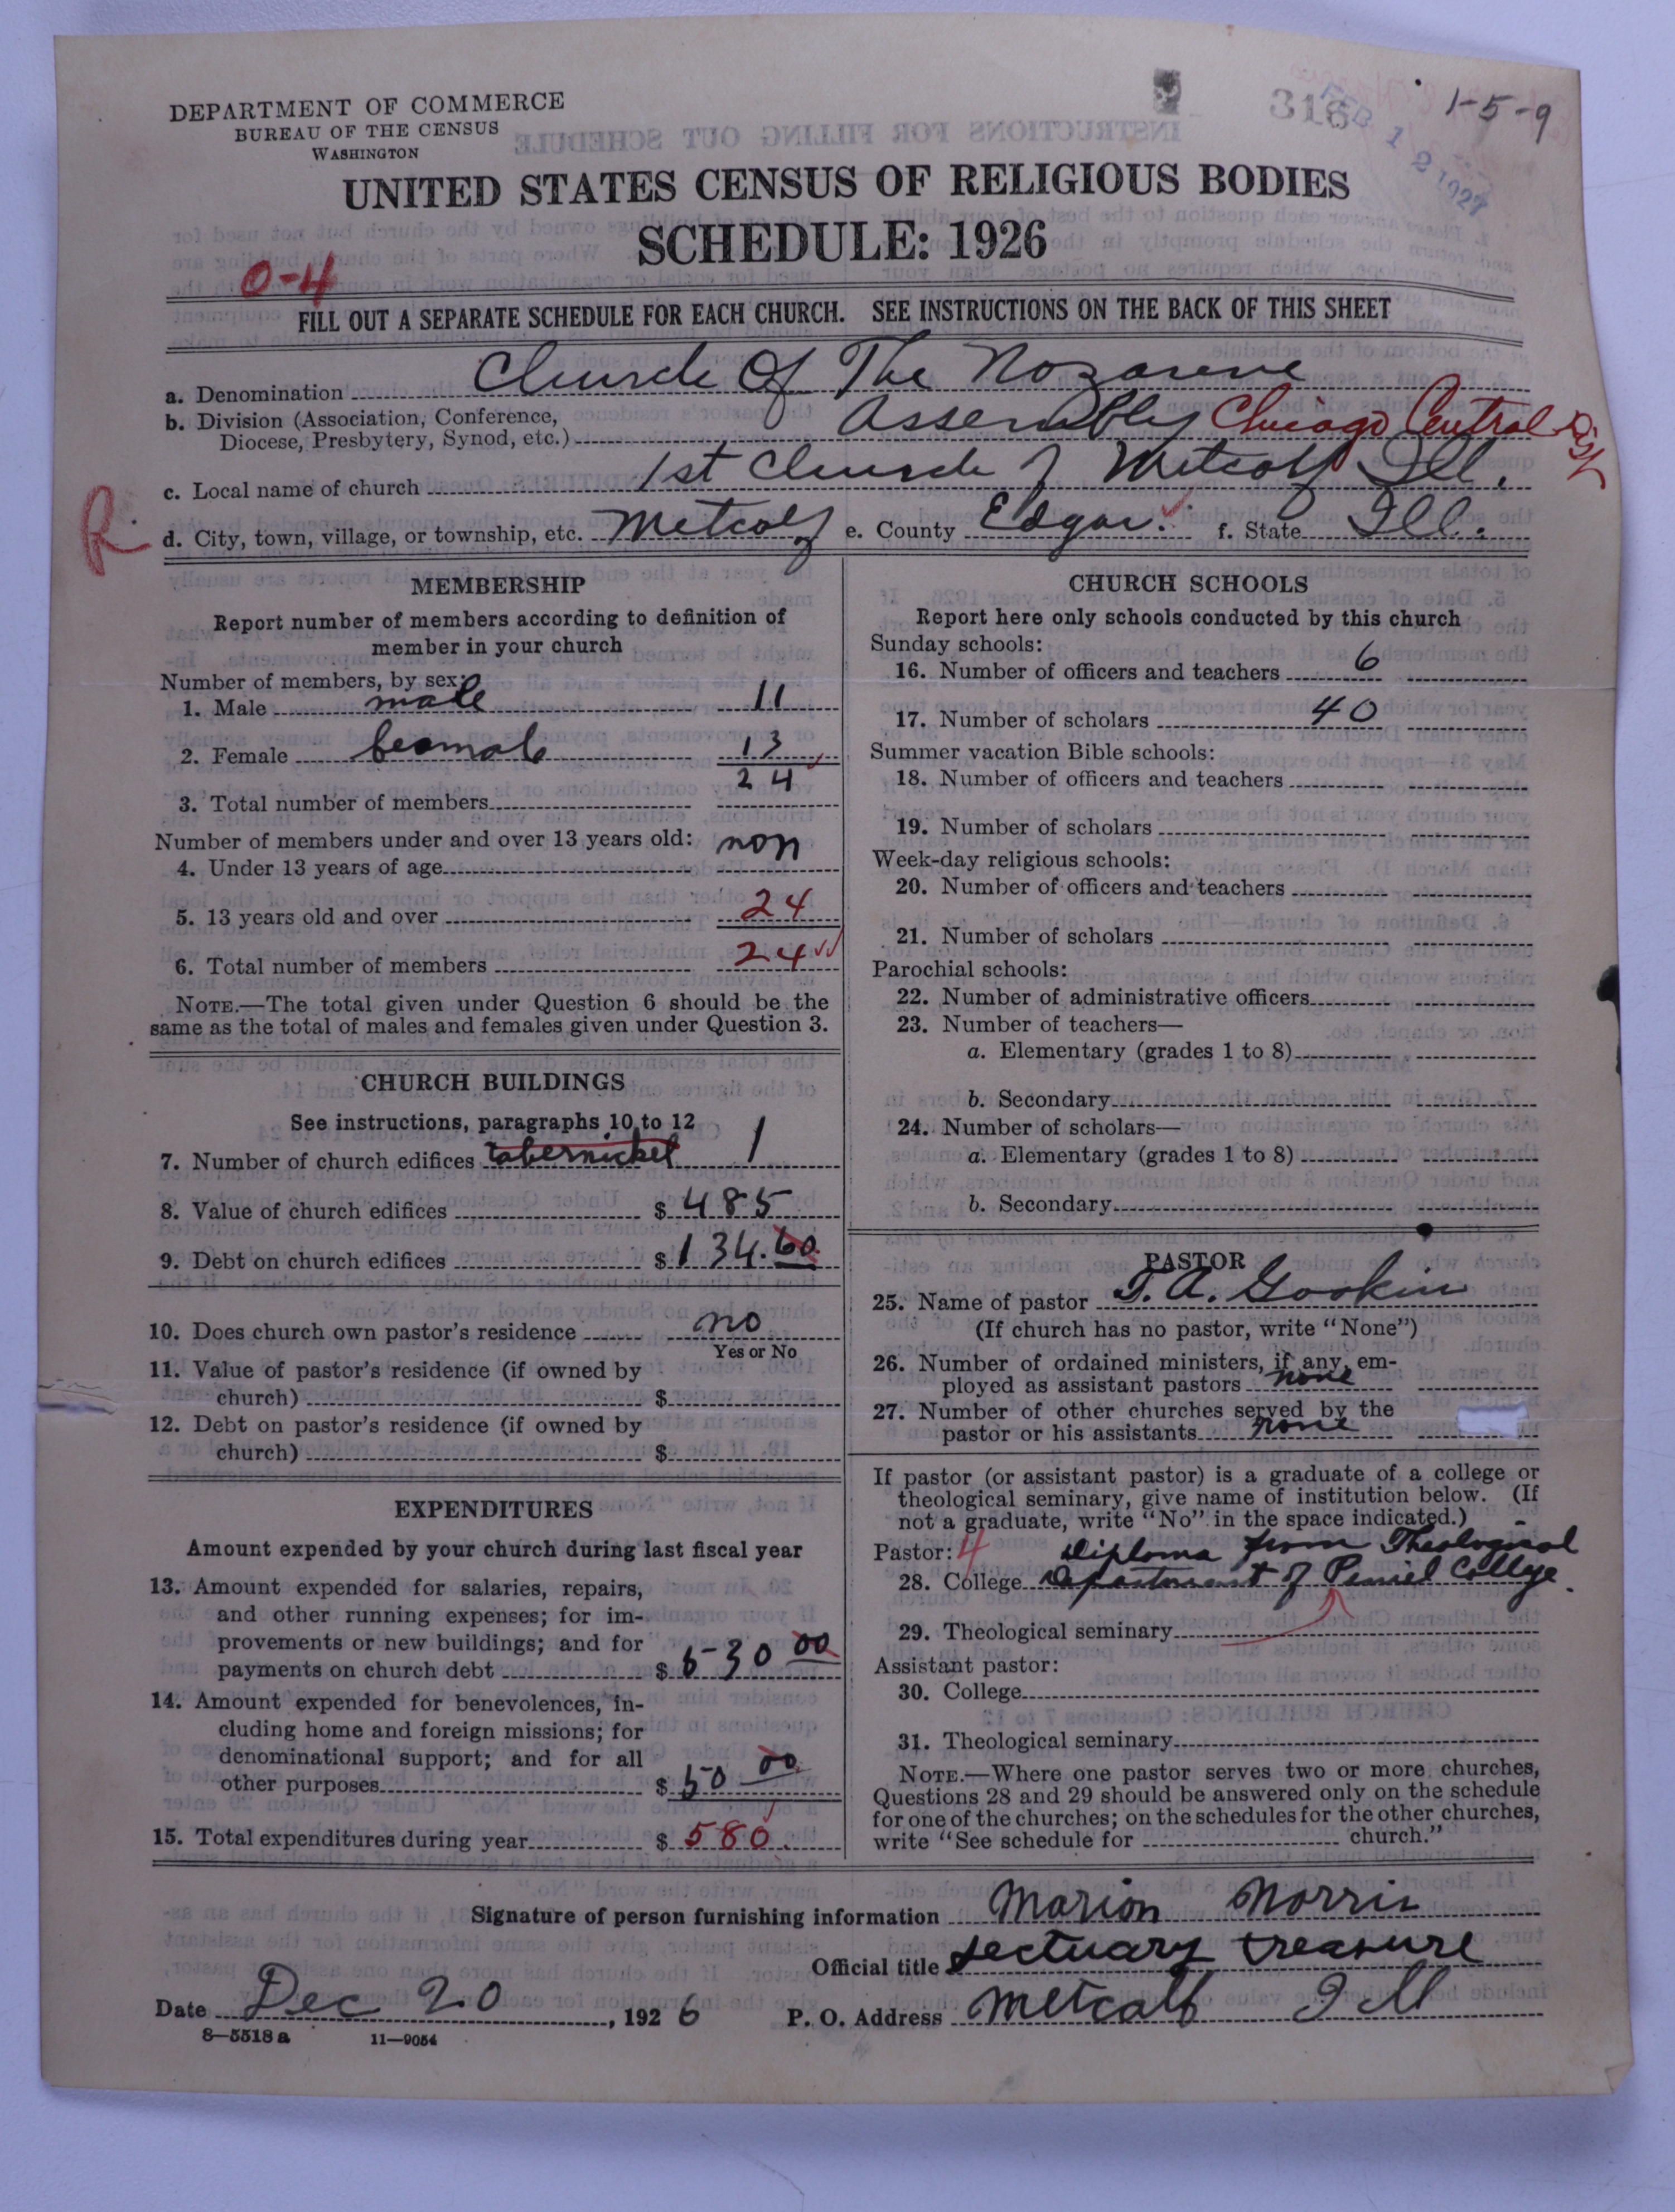 DEPARTMENT OF COMMERCE
BUREAU OF THE CENSUS
WASHINGTON
318
FEB 12 1927
1-5-9
UNITED STATES CENSUS OF RELIGIOUS BODIES
SCHEDULE: 1926
0-4
FILL OUT A SEPARATE SCHEDULE FOR EACH CHURCH. SEE INSTRUCTIONS ON THE BACK OF THIS SHEET
a. Denomination Church Of The Nozarene
b. Division (Association, Conference,
Diocese, Presbytery, Synod, etc.) Assembly Chicago Central Dist
c. Local name of church 1st Church of Metcalf Ill.
R
d. City, town, village, or township, etc. Metcalf e. County Edgar. f. State Ill.
MEMBERSHIP
Report number of members according to definition of
member in your church
Number of members, by sex:
1. Male male 11
2. Female feamale 13
24
3. Total number of members
Number of members under and over 13 years old:
4. Under 13 years of age non
5. 13 years old and over 24
6. Total number of members 24
NOTE.—The total given under Question 6 should be the
same as the total of males and females given under Question 3.
CHURCH BUILDINGS
See instructions, paragraphs 10 to 12
7. Number of church edifices tabernickel 1
8. Value of church edifices $ 485
9. Debt on church edifices $ 134.60
10. Does church own pastor's residence no
Yes or No
11. Value of pastor's residence (if owned by
church) $
12. Debt on pastor's residence (if owned by
church) $
EXPENDITURES
Amount expended by your church during last fiscal year
13. Amount expended for salaries, repairs,
and other running expenses; for im-
provements or new buildings; and for
payments on church debt $ 530 00
14. Amount expended for benevolences, in-
cluding home and foreign missions; for
denominational support; and for all
other purposes $ 50 00
15. Total expenditures during year $ 580.
CHURCH SCHOOLS
Report here only schools conducted by this church
Sunday schools:
16. Number of officers and teachers 6
17. Number of scholars 40
Summer vacation Bible schools:
18. Number of officers and teachers
19. Number of scholars
Week-day religious schools:
20. Number of officers and teachers
21. Number of scholars
Parochial schools:
22. Number of administrative officers
23. Number of teachers—
a. Elementary (grades 1 to 8)
b. Secondary
24. Number of scholars—
a. Elementary (grades 1 to 8)
b. Secondary
PASTOR
25. Name of pastor T. A. Goskin
(If church has no pastor, write "None")
26. Number of ordained ministers, if any, em-
ployed as assistant pastors none
27. Number of other churches served by the
pastor or his assistants none
If pastor (or assistant pastor) is a graduate of a college or
theological seminary, give name of institution below. (If
not a graduate, write "No" in the space indicated.)
Pastor: 4 Diploma from Theological
28. College Department of Peniel College.
29. Theological seminary
Assistant pastor:
30. College
31. Theological seminary
NOTE.—Where one pastor serves two or more churches,
Questions 28 and 29 should be answered only on the schedule
for one of the churches; on the schedules for the other churches,
write "See schedule for church."
Signature of person furnishing information Marion Norris
Official title sectuary treasure
Date Dec 20, 1926 P. O. Address Metcalf Ill
8-5518 a 11-9054